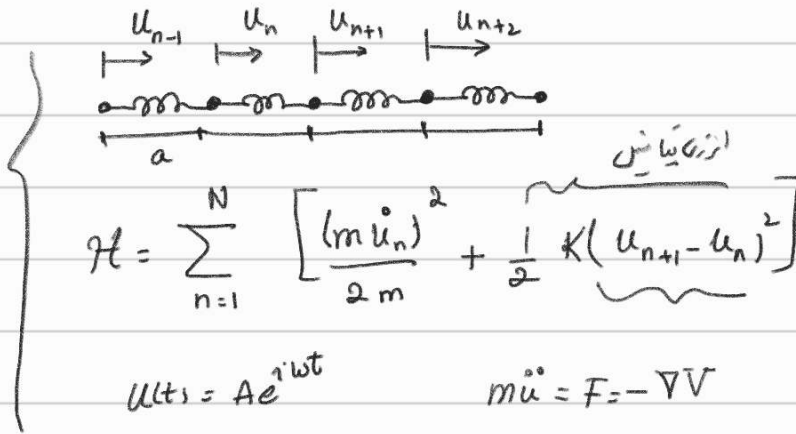 u_{n-1} u_n u_{n+1} u_{n+2}
a
انرژی پتانسیل
H = \sum_{n=1}^{N} [ \frac{(m \dot{u}_n)^2}{2m} + \frac{1}{2} K( u_{n+1} - u_n )^2 ]
u(t) = A e^{iωt} m\ddot{u} = F = -∇V